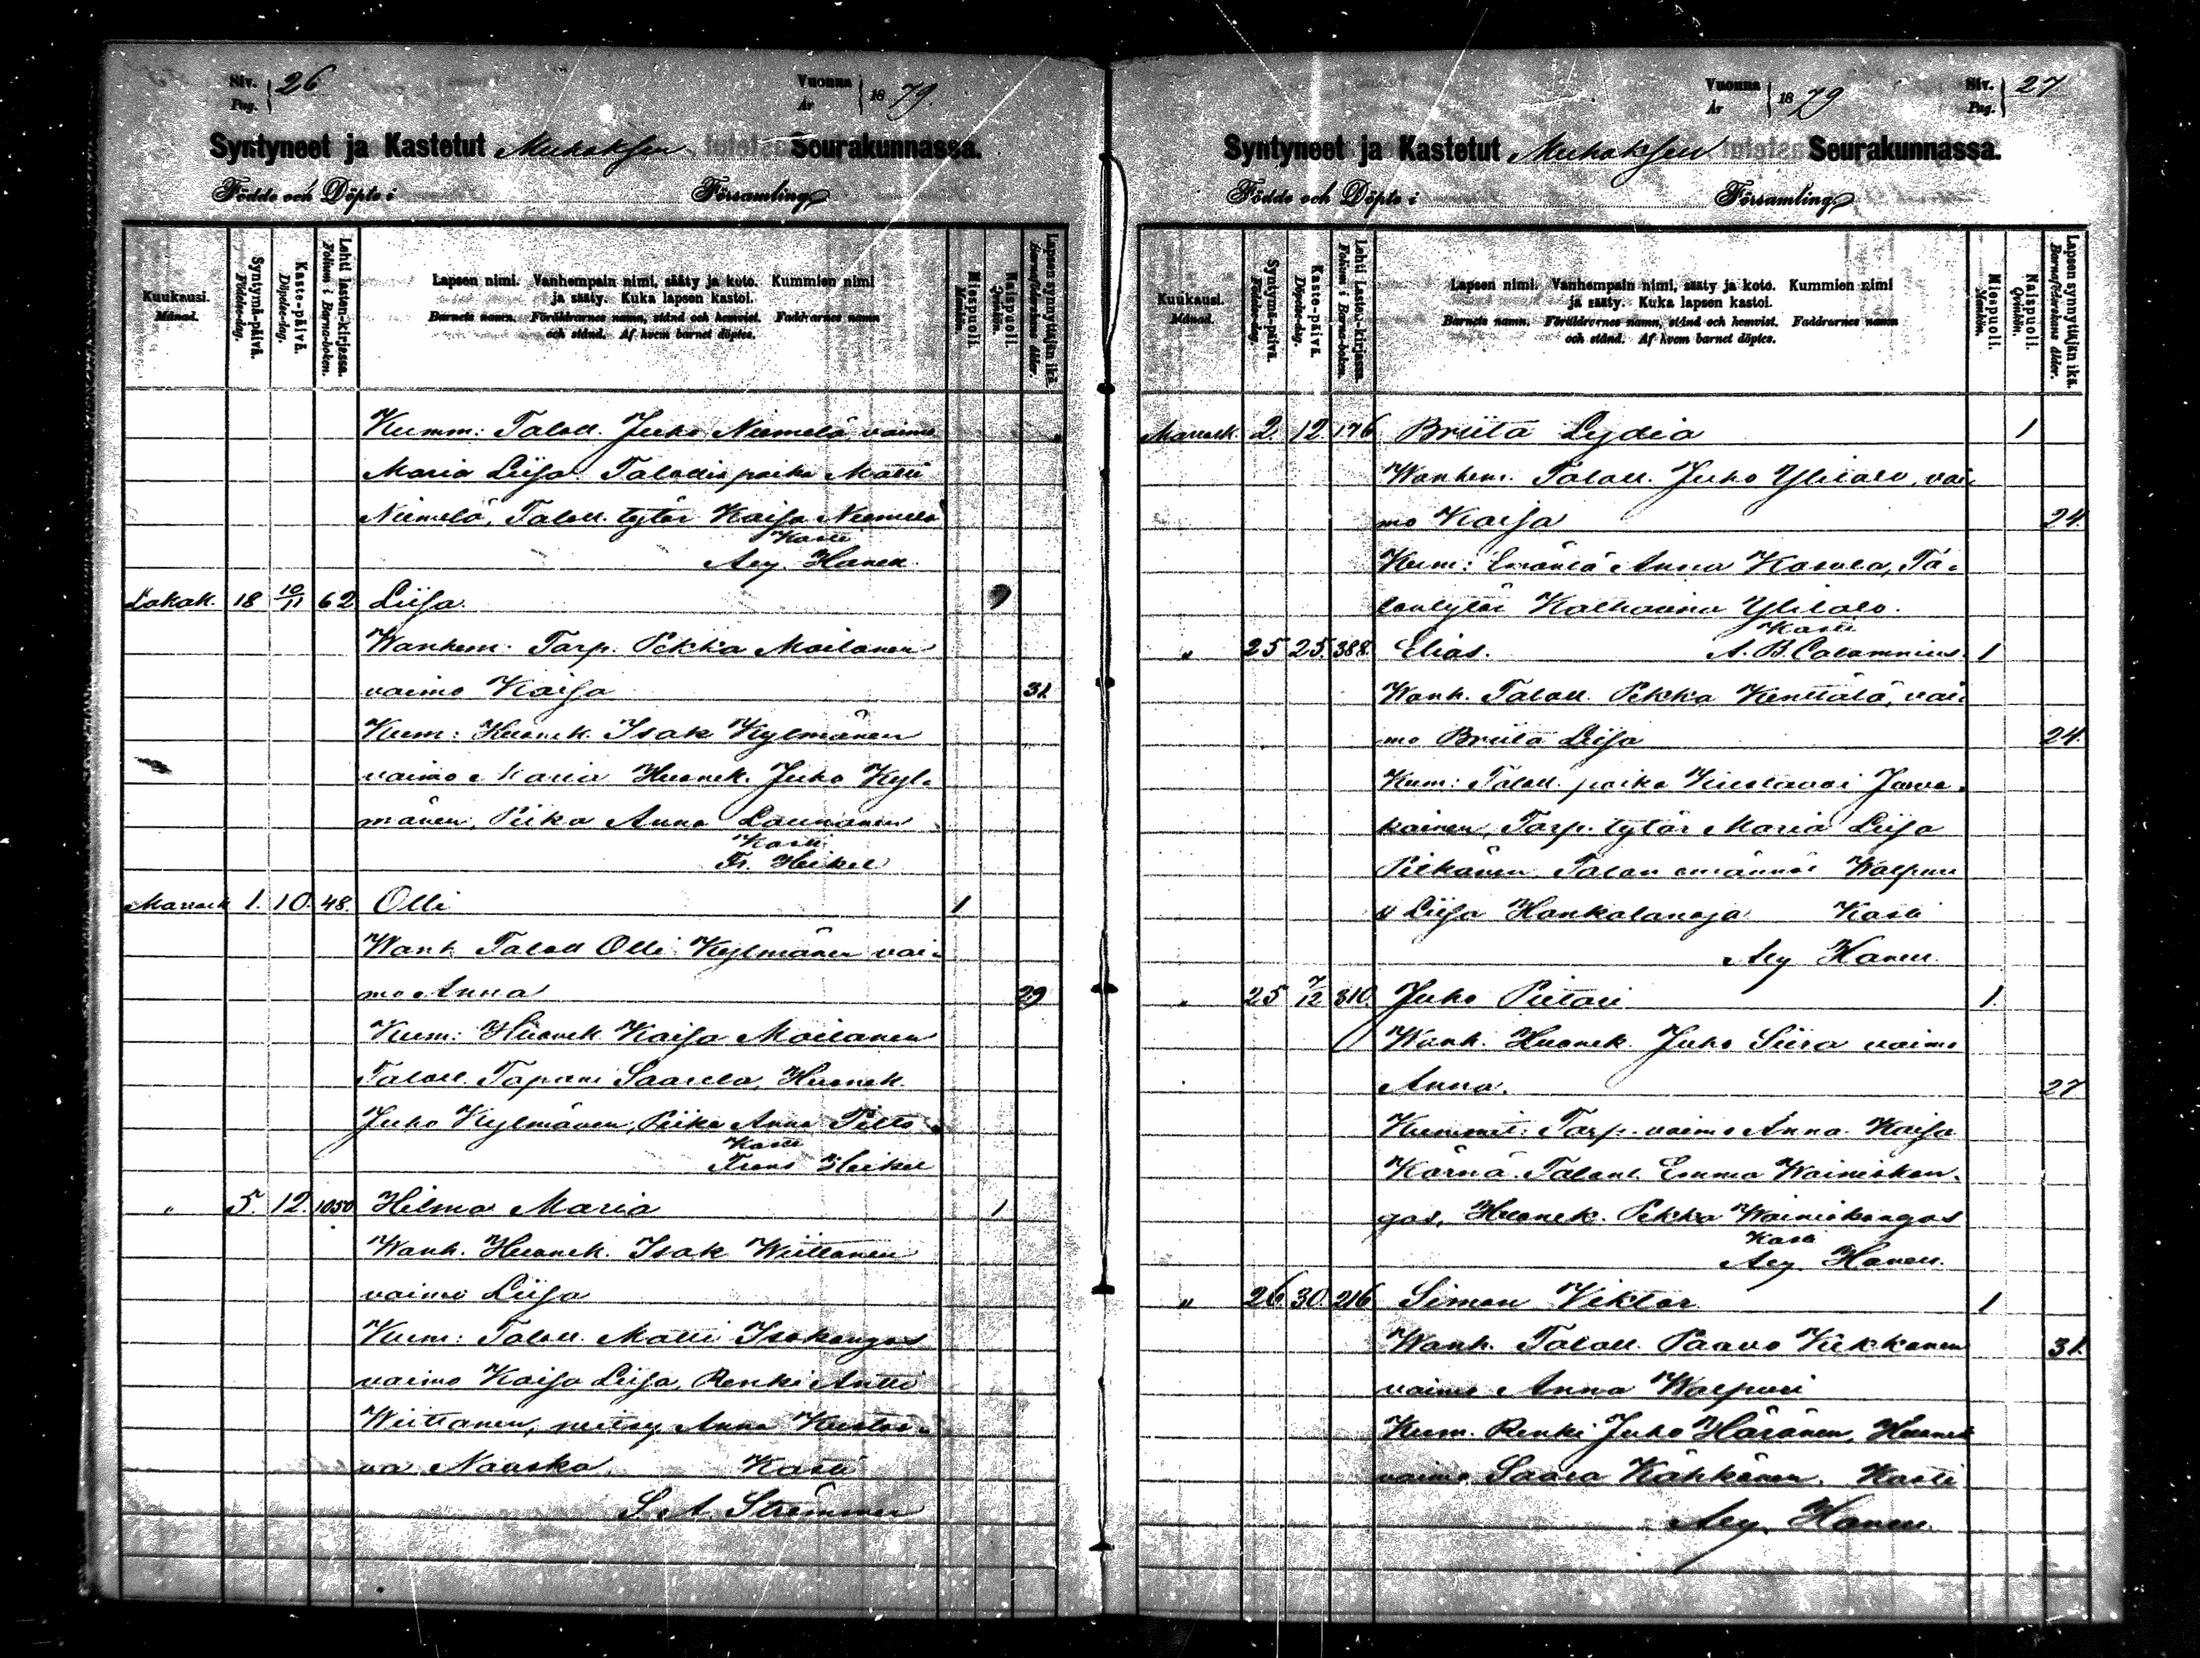 Siv. Pag. 26
Vuonna År 1879.
Syntyneet ja Kastetut Muhoksen Seurakunnassa.
Födde och Döpte i Församling
Kuukausi. Månad.
Syntymä-päivä. Födelse-dag.
Kaste-päivä. Döpelse-dag.
Lehti lasten-kirjassa. Folium i Barna-boken.
Lapsen nimi. Vanhempain nimi, sääty ja koto. Kummien nimi
ja sääty. Kuka lapsen kastoi.
Barnets namn. Föräldrarnes namn, stånd och hemvist. Faddrarnes namn
och stånd. Af hvem barnet döptes.
Miespuoli. Mankön.
Naispuoli. Qvinkön.
Lapsen synnyttäjän ikä. Barnaföderskans ålder.
Kumm: Taloll. Juho Niemelä vaimo
Maria Liisa. Talodis poika Matti
Niemelä, Taloll. tytär Kaisa Niemelä
Kasti
Aug. Hanell
Lokak. 18 10/11 62 Liisa.
Wanhem. Torp. Pekka Moilanen
vaimo Kaisa 31.
Kum: Huonek. Isak Kylmänen
vaimo Maria Huonek. Juho Kyl-
mänen, Piika Anna Launonen
Kasti
Fr. Heikel
Marrask 1. 10. 48. Olli 1
Wanh. Taloll Olli Kylmänen vai-
mo Anna 29
Kum: Huonek Kaisa Moilanen
Taloll. Tapani Saarela, Huonek.
Juho Kylmänen, Piika Anna Pilto
Kasti
Frans Heikel
" 5. 12. 1050 Hilma Maria 1
Wanh. Huonek. Isak Wiittanen
vaimo Liisa
Kum: Taloll. Matti Isokangas
vaimo Kaisa Liisa, Renki Antti
Wiittanen, neitsy Anna Kusta-
va Naaska. Kasti
S. A. Strömmer
Siv. Pag. 27
Vuonna År 1879
Syntyneet ja Kastetut Muhoksen Seurakunnassa.
Födde och Döpte i Församling
Kuukausi. Månad.
Syntymä-päivä. Födelse-dag.
Kaste-päivä. Döpelse-dag.
Lehti Lasten-kirjassa. Folium i Barna-boken.
Lapsen nimi. Vanhempain nimi, sääty ja koto. Kummien nimi
ja sääty. Kuka lapsen kastoi.
Barnets namn. Föräldrarnes namn, stånd och hemvist. Faddrarnes namn
och stånd. Af hvem barnet döptes.
Miespuoli. Mankön.
Naispuoli. Qvinkön.
Lapsen synnyttäjän ikä. Barnaföderskans ålder.
Marrask. 2. 12 176 Briita Lydia 1
Wanhem. Taloll. Juho Ylitalo, vai-
mo Kaisa 24.
Kum: Emäntä Anna Kosula, Ta-
lontytär Katharina Ylitalo.
Kasti
" 25 25. 388. Elias. A. B. Calamnius. 1
Wanh. Taloll. Pekka Kenttälä, vai-
mo Briita Liisa 24.
Kum: Taloll. poika Kustaavi Juva-
kainen, Torp. tytär Maria Liisa
Pitkänen, Talon emännät Walpuri
o Liisa Hankalanoja Kasti
Aug Hanell.
" 25 7/12 310. Juho Pietari 1.
Wanh. Huonek. Juho Siira vaimo
Anna. 27
Kummit: Torp. vaimo Anna Kaisa
Kärnä. Talont. Emma Wainiokan-
gas, Huonek. Pekka Wainiokangas
Kasti
Aug Hanell.
" 26. 30. 216 Simon Viktor 1
Wanh. Taloll. Paavo Kikkanen 31.
vaimo Anna Walpuri
Kum. Renki Juho Häränen, Huonek
vaimo Saara Kähkönen. Kasti
Aug. Hanell.